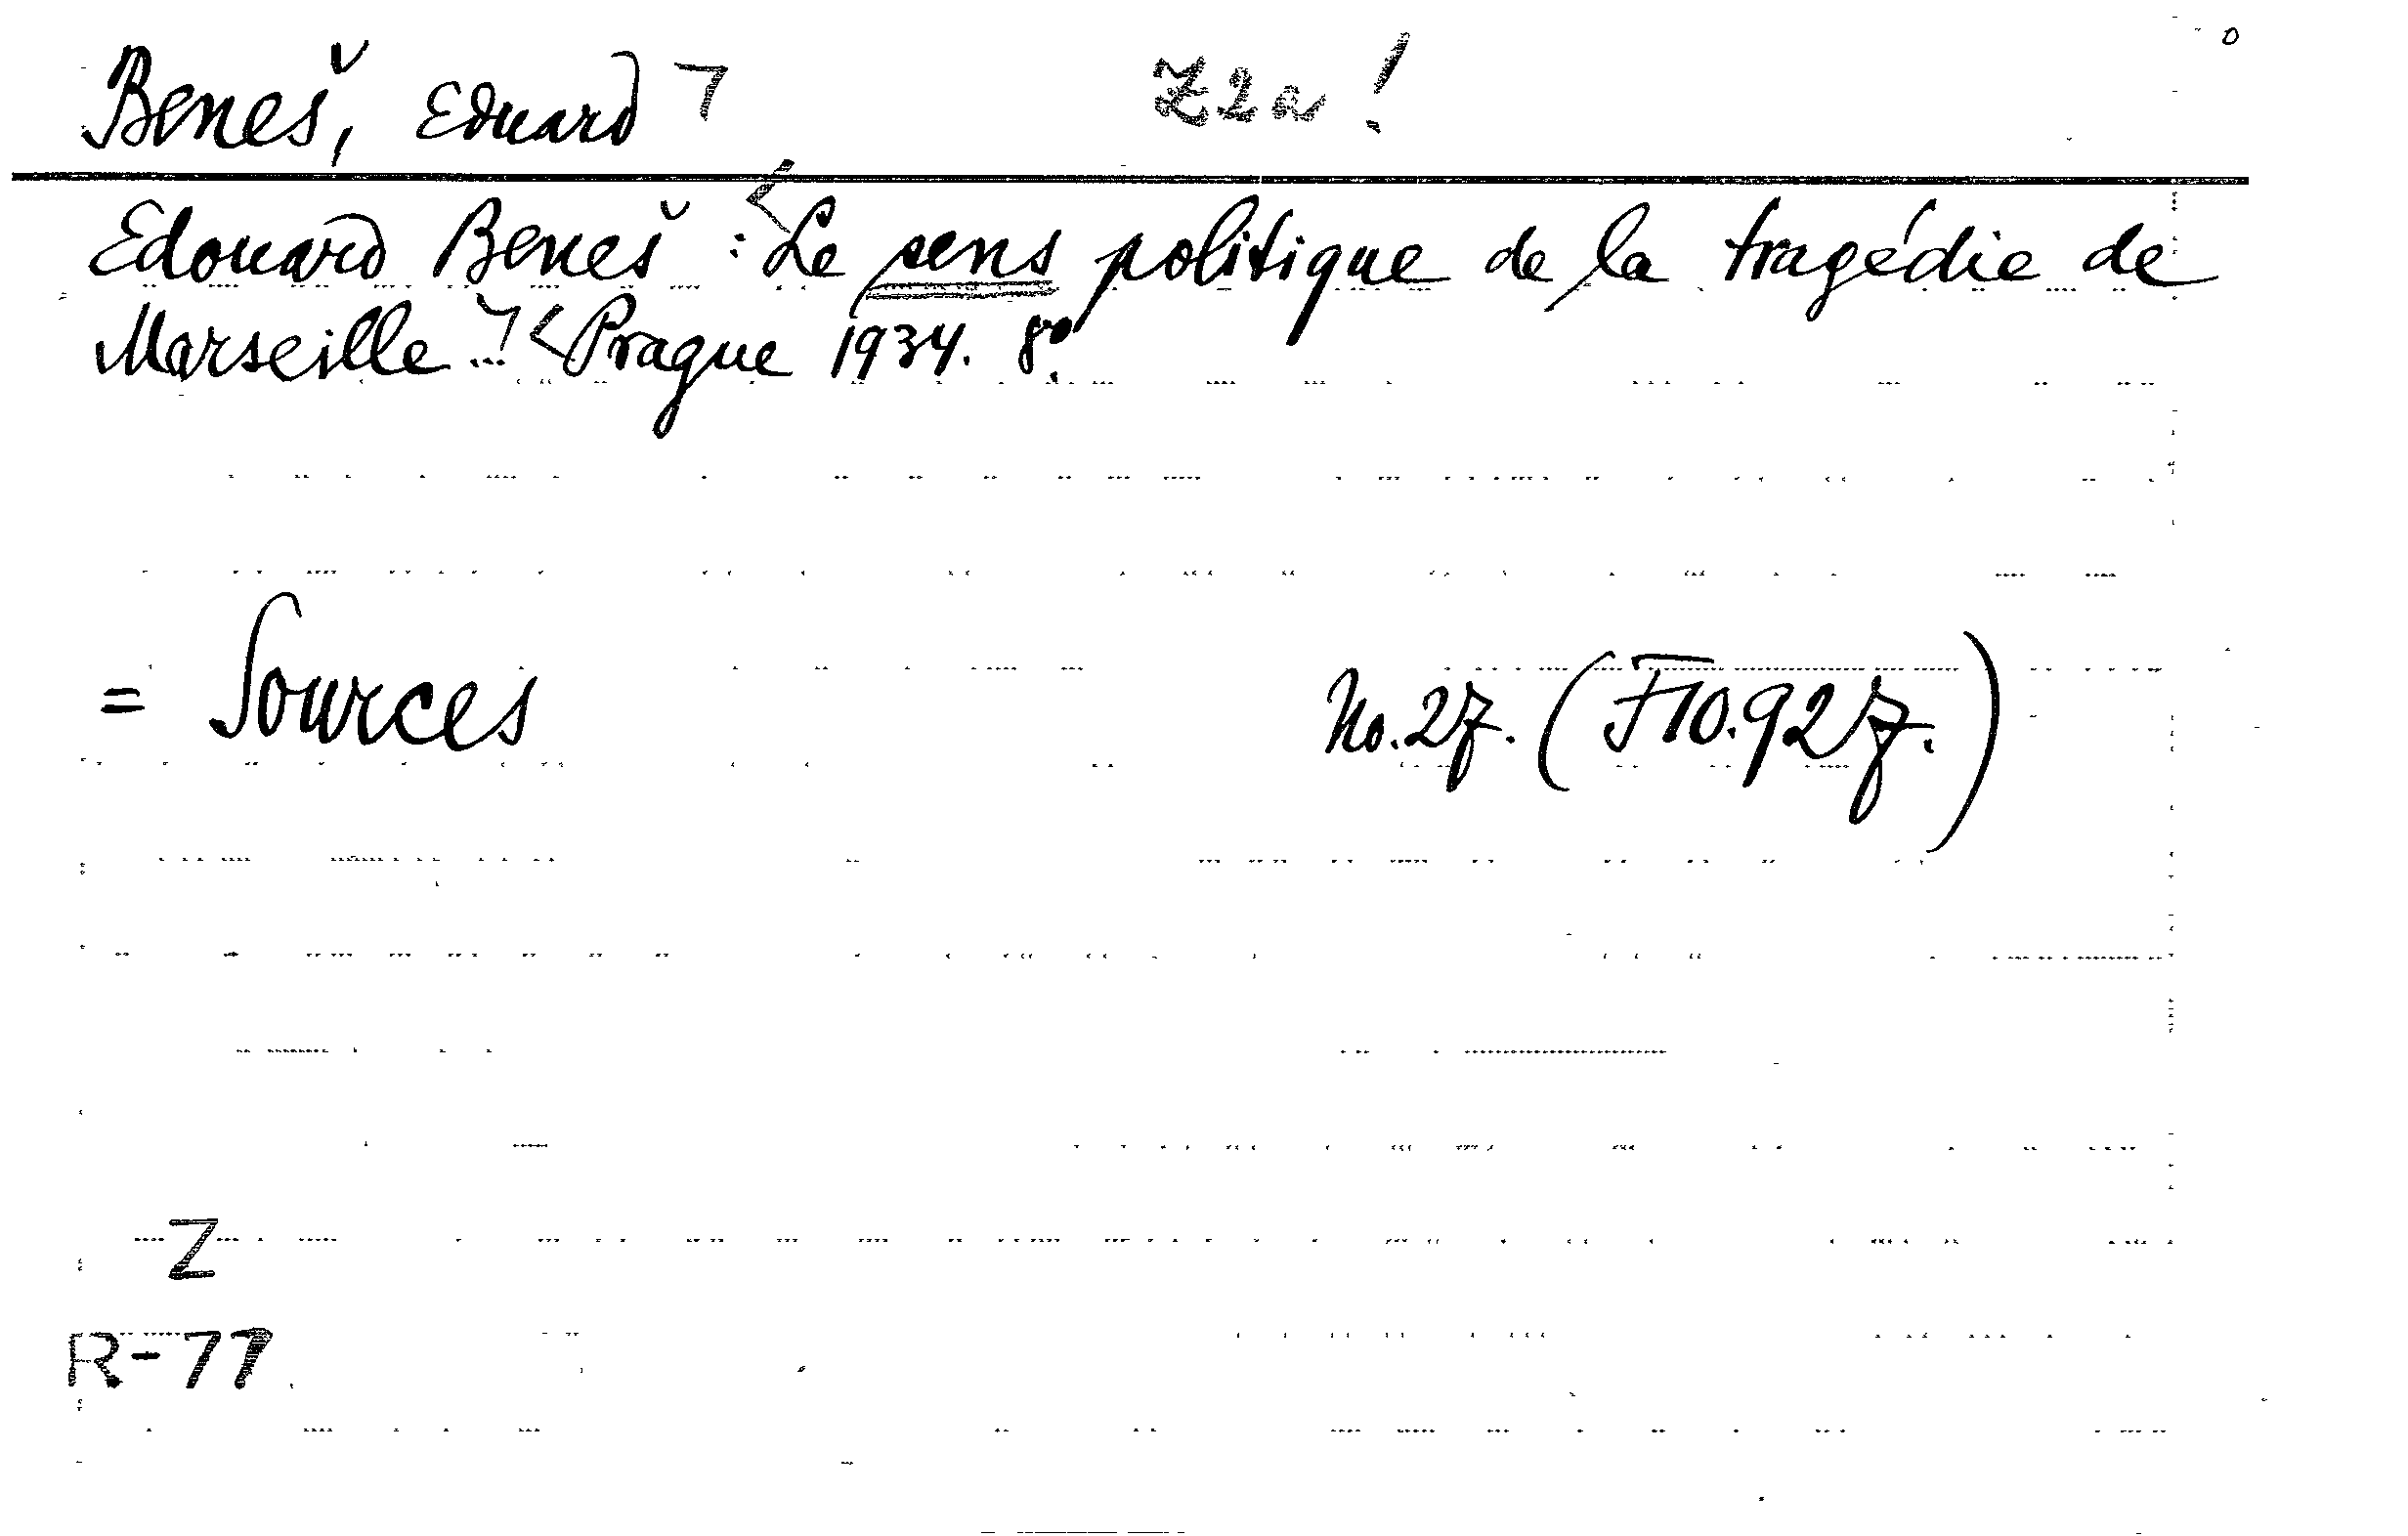 Beneš, Eduard ⌉ Z2a!
Edouard Beneš : <Le sens politique de la tragédie de
Marseille.⌉ <Prague 1934. 8°.
= Sources No. 27. (F10.927.)
Z
R-77